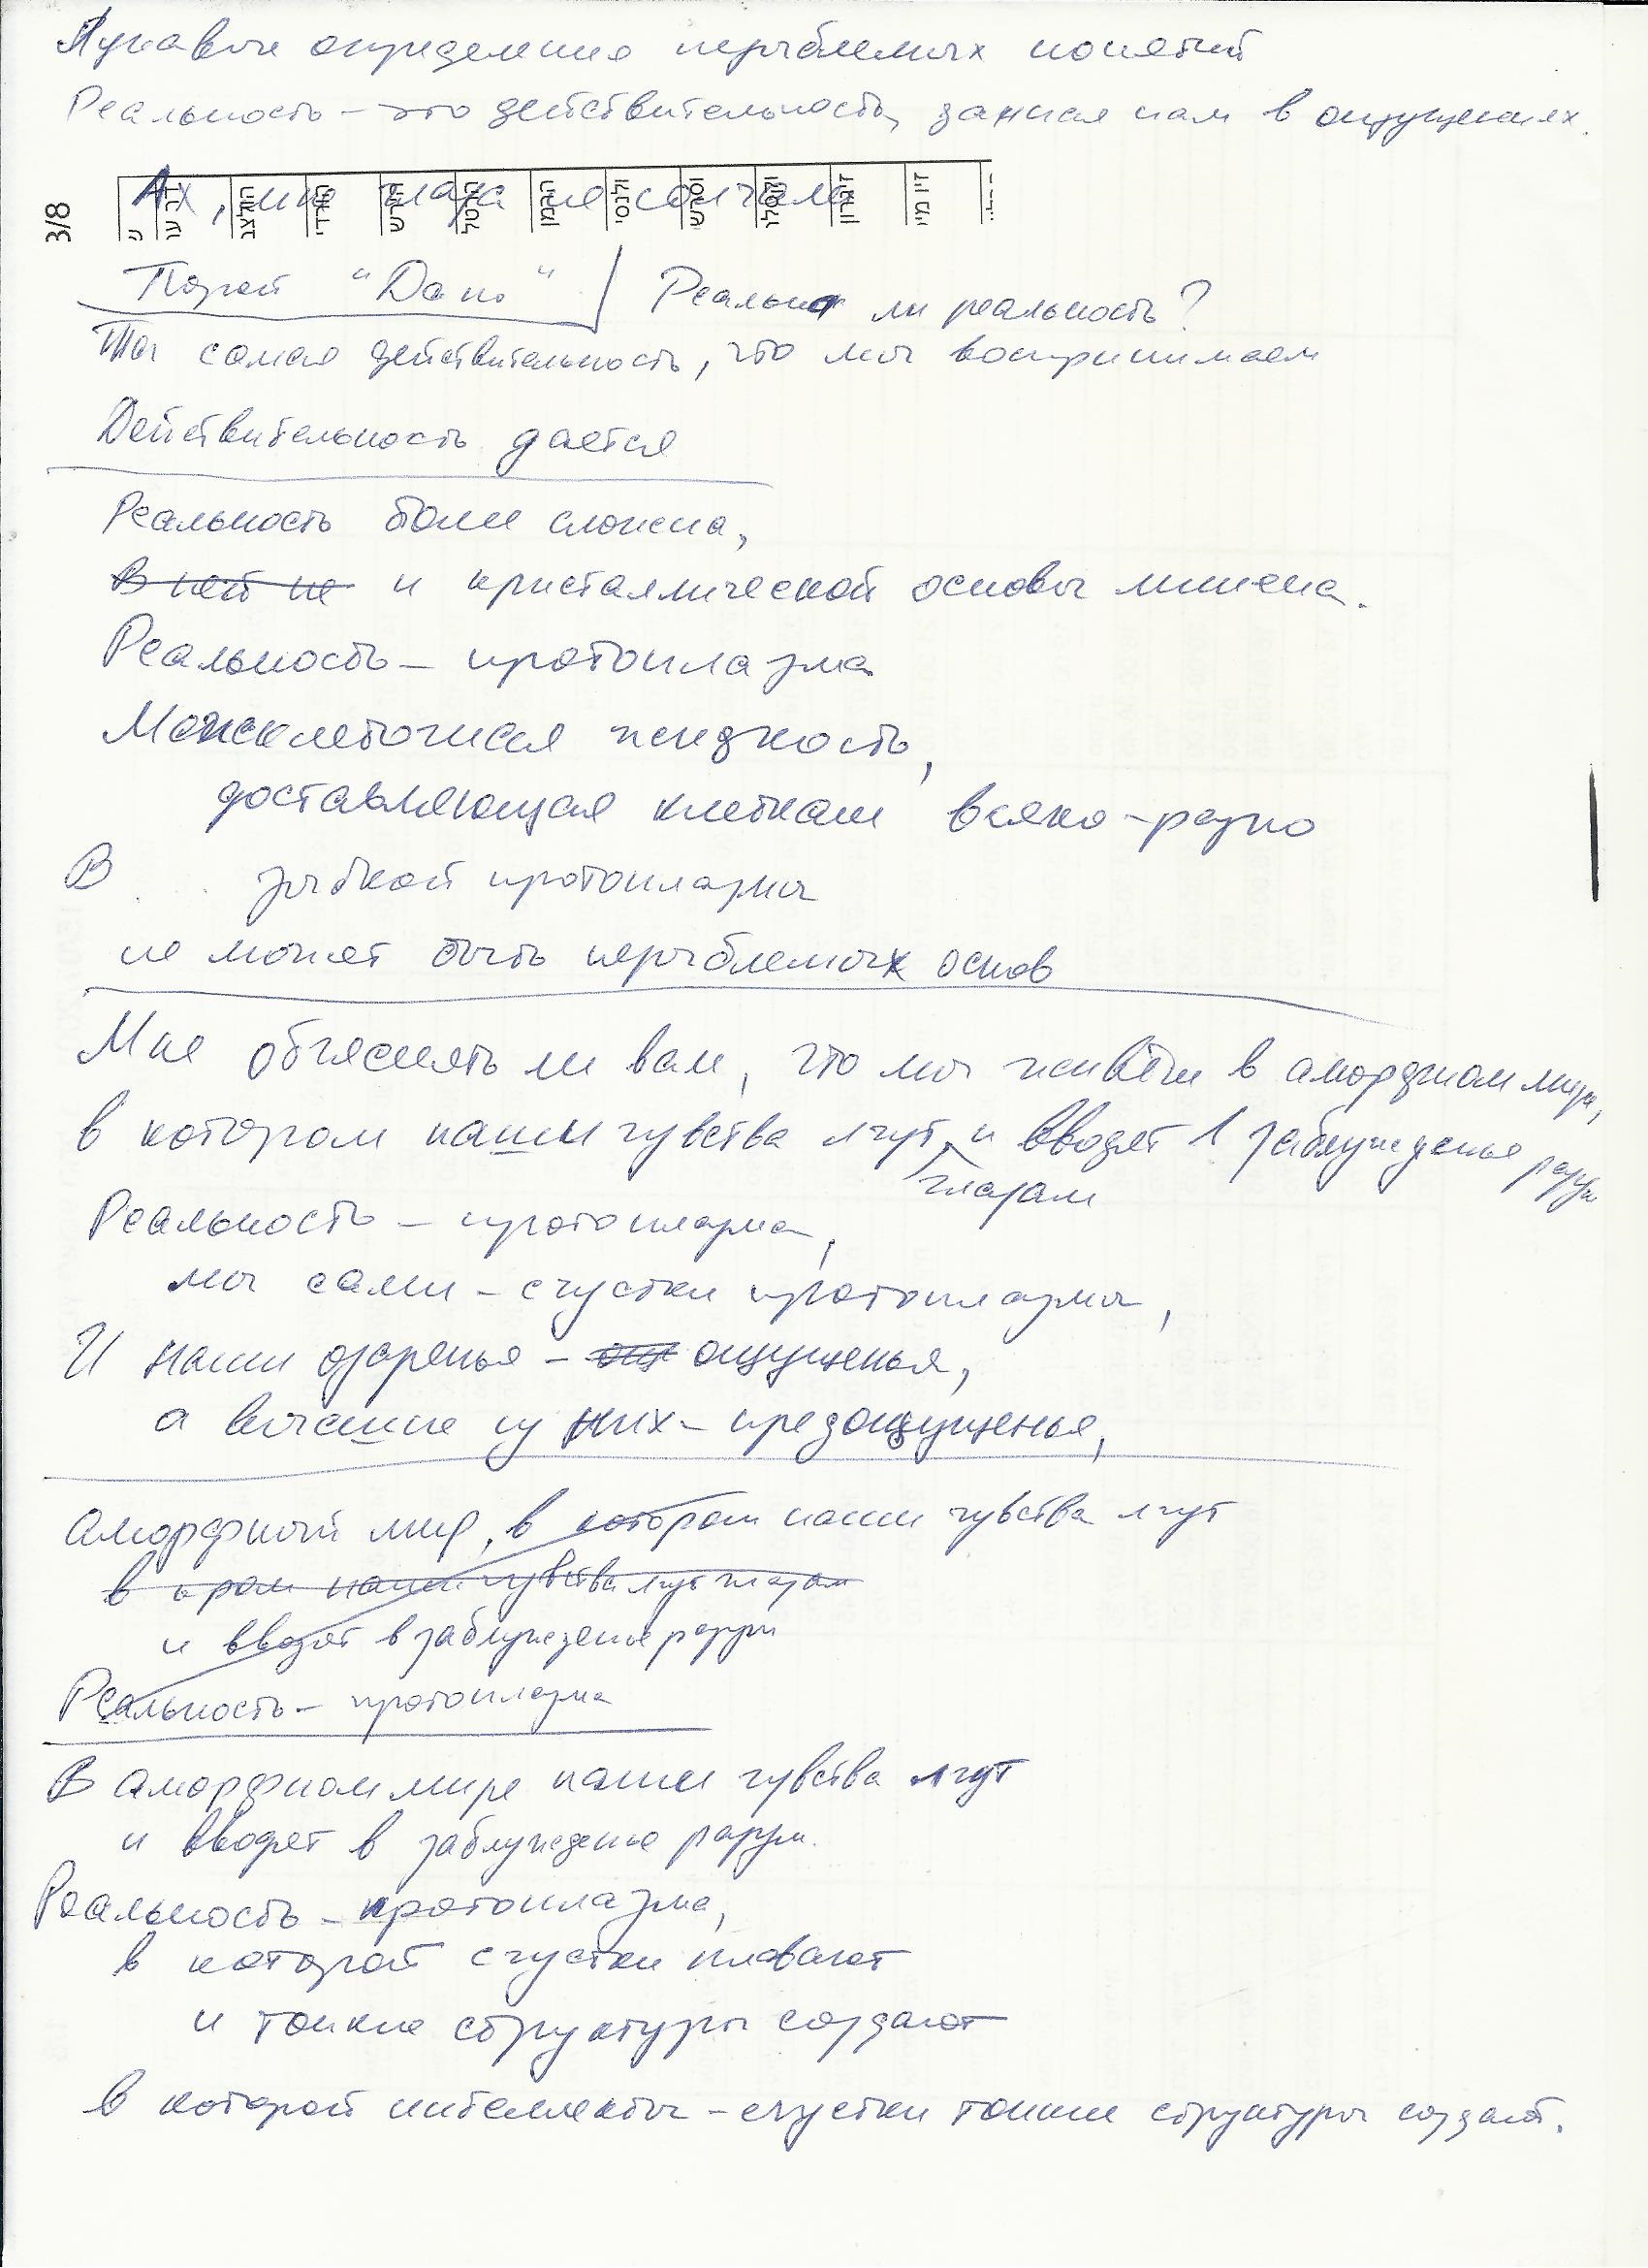 Лукавые определения незыблемых понятий
Реальность – это действительность, данная нам в ощущениях.
3/8
Ах, мне глаза не солгали
Порой "Дано" Реальна ли реальность?
Та самая действительность, что мы воспринимаем
Действительность дается
Реальность более сложена,
В ней не и кристаллической основы лишена.
Реальность – протоплазма
Межклеточная жидкость,
доставляющая клеткам всяко-разно
В зыбкой протоплазмы
не может быть незыблемых основ
Мне объяснять ли вам, что мы живём в аморфном мире,
в котором наши чувства лгут и вводят в заблужденье разум
глазам
Реальность – протоплазма,
мы сами – сгустки протоплазмы,
И наши озаренья – ощ ощущенья,
а высшие из них – предощущенья,
Аморфный мир, в котором наши чувства лгут
в кром наши чувства лгут глазам
и вводят в заблужденье разум
Реальность – протоплазма
В аморфном мире наши чувства лгут
и вводят в заблужденье разум.
Реальность – протоплазма,
в которой сгустки плавают
и тонкие структуры создают
в которой интеллекты – сгустки тонкие структуры создают.